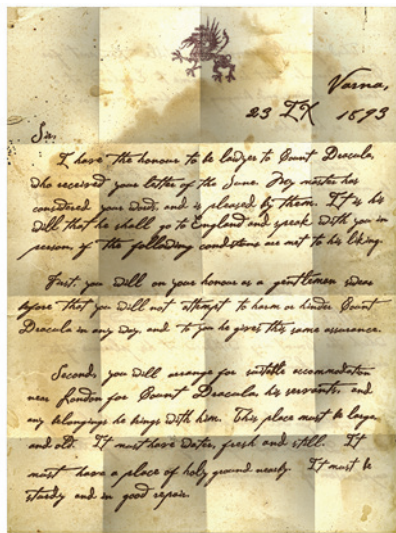 Varna,
23 IX 1893
Sir,
I have the honour to be lawyer to Count Dracula,
who received your letter of the June. My master has
considered your words, and is pleased by them. It is his
will that he shall go to England and speak with you in
person, if the following conditions are met to his liking.
First, you will on your honour as a gentlemen swear
before that you will not attempt to harm or hinder Count
Dracula in any way, and to you he gives this same assurance.
Second, you will arrange for suitable accommodation
near London for Count Dracula, his servants, and
any belongings he brings with him. This place must be large,
and old. It must have water, fresh and still. It
must have a place of holy ground nearby. It must be
sturdy and in good repair.